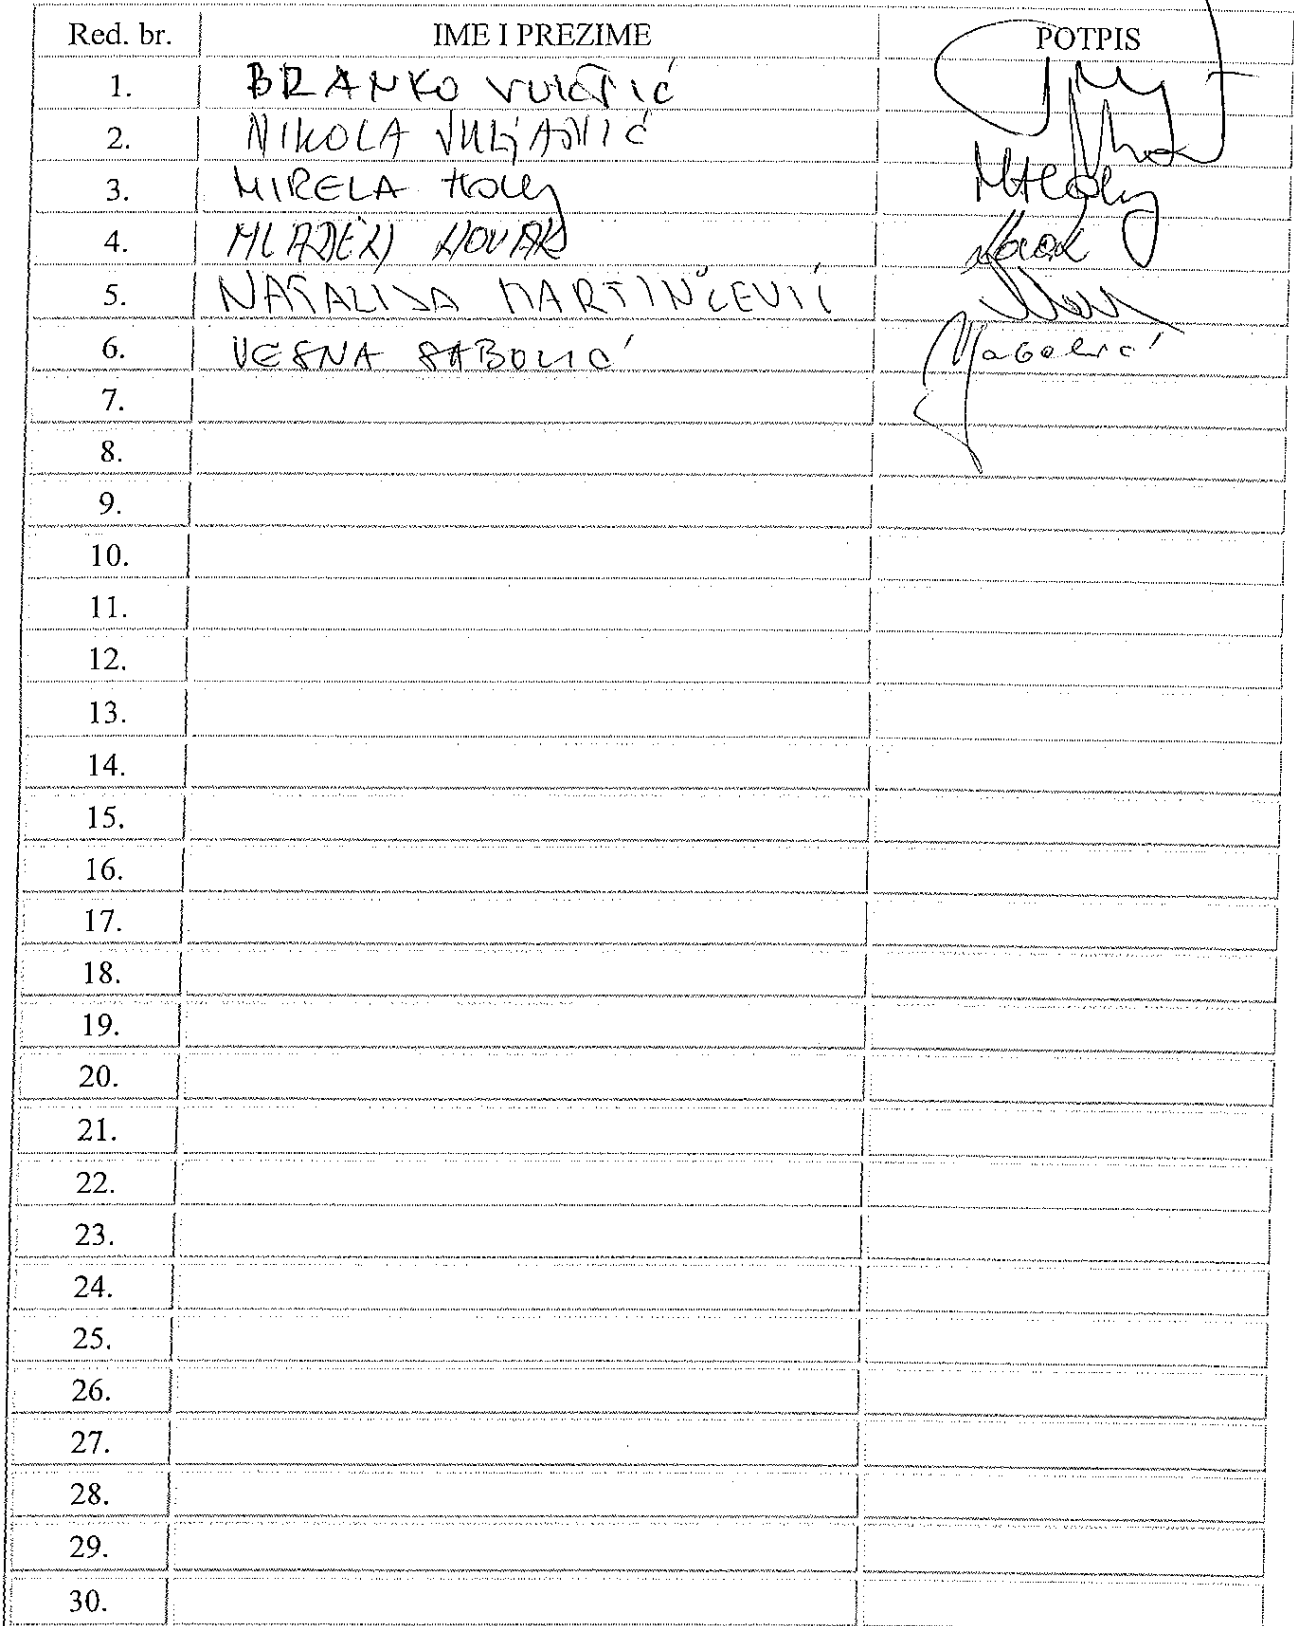 Red. br. IME I PREZIME POTPIS
1. BRANKO
2. NIKOLA
3. MIRELA Holy MHoly
4. MLADEN NOVAK Novak
5. NATALIJA MARTINČEVIĆ
6. VESNA SABOLIĆ Sabolić
7.
8.
9.
10.
11.
12.
13.
14.
15.
16.
17.
18.
19.
20.
21.
22.
23.
24.
25.
26.
27.
28.
29.
30.